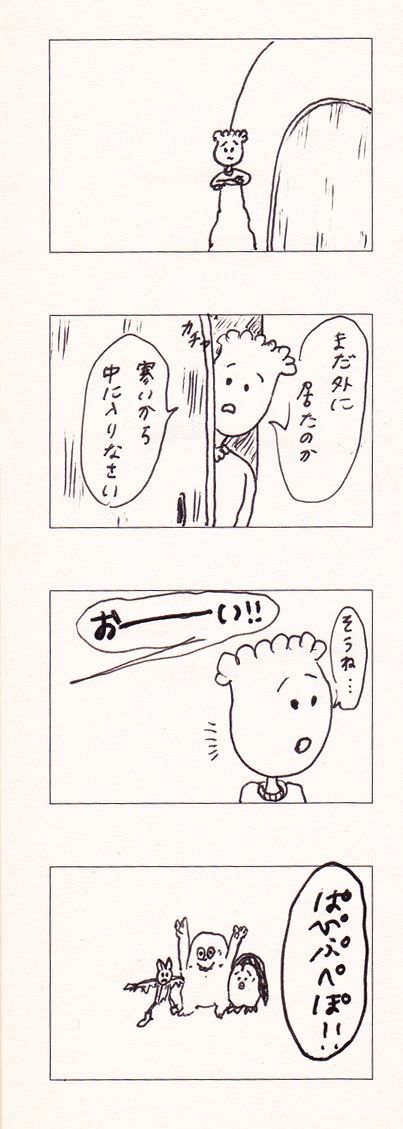 まだ外に
居たのか
カチャ
寒いから
中に入りなさい
そうね…
おーい!!
ぱぴぷぺぽ!!